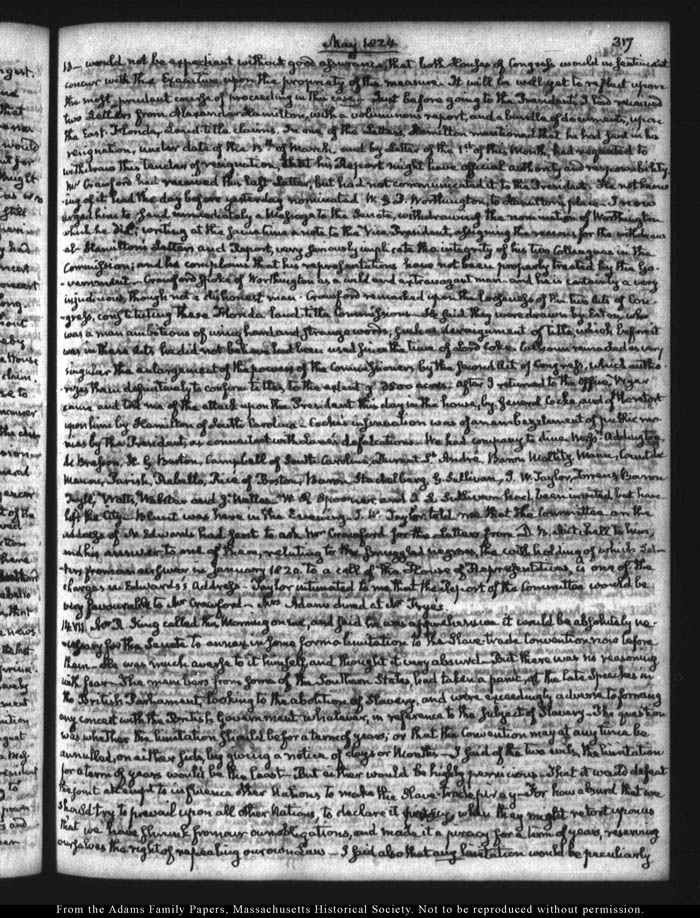 May 1824.
317
13 — would not be expedient without good assurance that both Houses of Congress would in sentiment
concur with the Executive upon the propriety of the measure. It will be well yet to reflect upon
the most prudent course of proceeding in this case — Just before going to the President's, I had received
two Letters from Alexander Hamilton, with a voluminous report, and a bundle of documents, upon
the East-Florida, Land title claims. In one of the Letters, Hamilton mentioned that he had sent in his
resignation, under date of the of March, and by Letter of the 1st of this Month had requested to
withdraw this tender of resignation, that his Report might have official authority and responsibility.
Mr Crawford had received this last Letter, but had not communicated it to the President. He not know-
ing of it had the day before yesterday nominated W. G. D. Worthington, to Hamilton's place. I now
urged him to send immediately a Message to the Senate, withdrawing the nomination of Worthington
which he did; writing at the same time a note to the Vice-President, assigning the reasons for the withdraw-
al — Hamilton's Letters and Report, very seriously implicate the integrity of his two Colleagues in the
Commission; and he complains that his representations have not been properly treated by the Go-
vernment — Crawford spoke of Worthington as a wild and extravagant man — and he is certainly a very
injudicious, though not a dishonest man. Crawford remarked upon the looseness of the two Acts of Con-
gress, constituting these Florida land title Commissions. He said they were drawn by Eaton, who
was a man ambitious of using hard and strange words; such as deraignment of title which before it
was in these Acts he did not believe had been used since the time of Lord Coke. Calhoun remarked as very
singular the enlargement of the powers of the Commissioners by the second Act of Congress, which autho-
rizes them definitively to confirm titles, to the extent of 3500 acres. After I returned to the Office, Wyer
came and told me of the attack upon the President this day in the house, by General Cocke and of the retort
upon him by Hamilton of South Carolina — Cocke's insinuation was of an embezzlement of public mo-
nies by the President, as connected with Lane's defalcations. We had company to dine, Messrs Addington,
de Bresson, H. G. Burton, Campbell of South Carolina, Durant St. André, Baron Maltitz, Mann, Count de
Menou, Parish, Rebello, Rice of Boston, Baron Stackelberg, G. Sullivan, J. W. Taylor, Torrens, Baron
Tuyll, Wells, Webster and J. Wallen. W. R. Spooner and J. L. Sullivan had been invited, but have
left the City. Blunt was here in the Evening. J. W. Taylor told me that the Committee on the
address of N. Edwards had sent to ask Mr Crawford for the Letters from D. B. Mitchell to him,
and his answer to one of them, relating to the smuggled negroes, the withholding of which
from an answer in January 1820 to a call of the House of Representatives, is one of the
charges in Edwards's Address — Taylor intimated to me that the Report of the Committee would be
very favourable to Mr Crawford — Mrs Adams dined at Mr Frye's.
14. VII. Mr R. King called this Morning on me, and said he was apprehensive it would be absolutely ne-
cessary for the Senate to annex in some form a limitation to the Slave-trade Convention now before
them. He was much averse to it himself, and thought it very absurd — But there was no reasoning
with fear. The members from some of the Southern States, had taken a panic, at the late Speeches in
the British Parliament, looking to the abolition of Slavery, and were exceedingly adverse to forming
any concert with the British Government whatever, in reference to the subject of Slavery. The question
was whether the limitation should be for a term of years, or that the Convention may at any time be
annulled, on either side, by giving a notice of days or Months — I said of the two evils, the limitation
for a term of years would be the least — But either would be highly pernicious — That it would defeat
the joint attempt to influence other Nations to make the Slave-trade piracy — For how absurd that we
should try to prevail upon all other Nations, to declare it piracy, when they might retort upon us
that we have shrunk from our own obligations, and made it a piracy for a term of years, reserving
ourselves the right of repealing our own Law — I said also that any limitation would be peculiarly
From the Adams Family Papers, Massachusetts Historical Society. Not to be reproduced without permission.